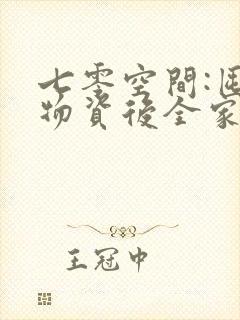 七零空間:
物資後全家
王冠中